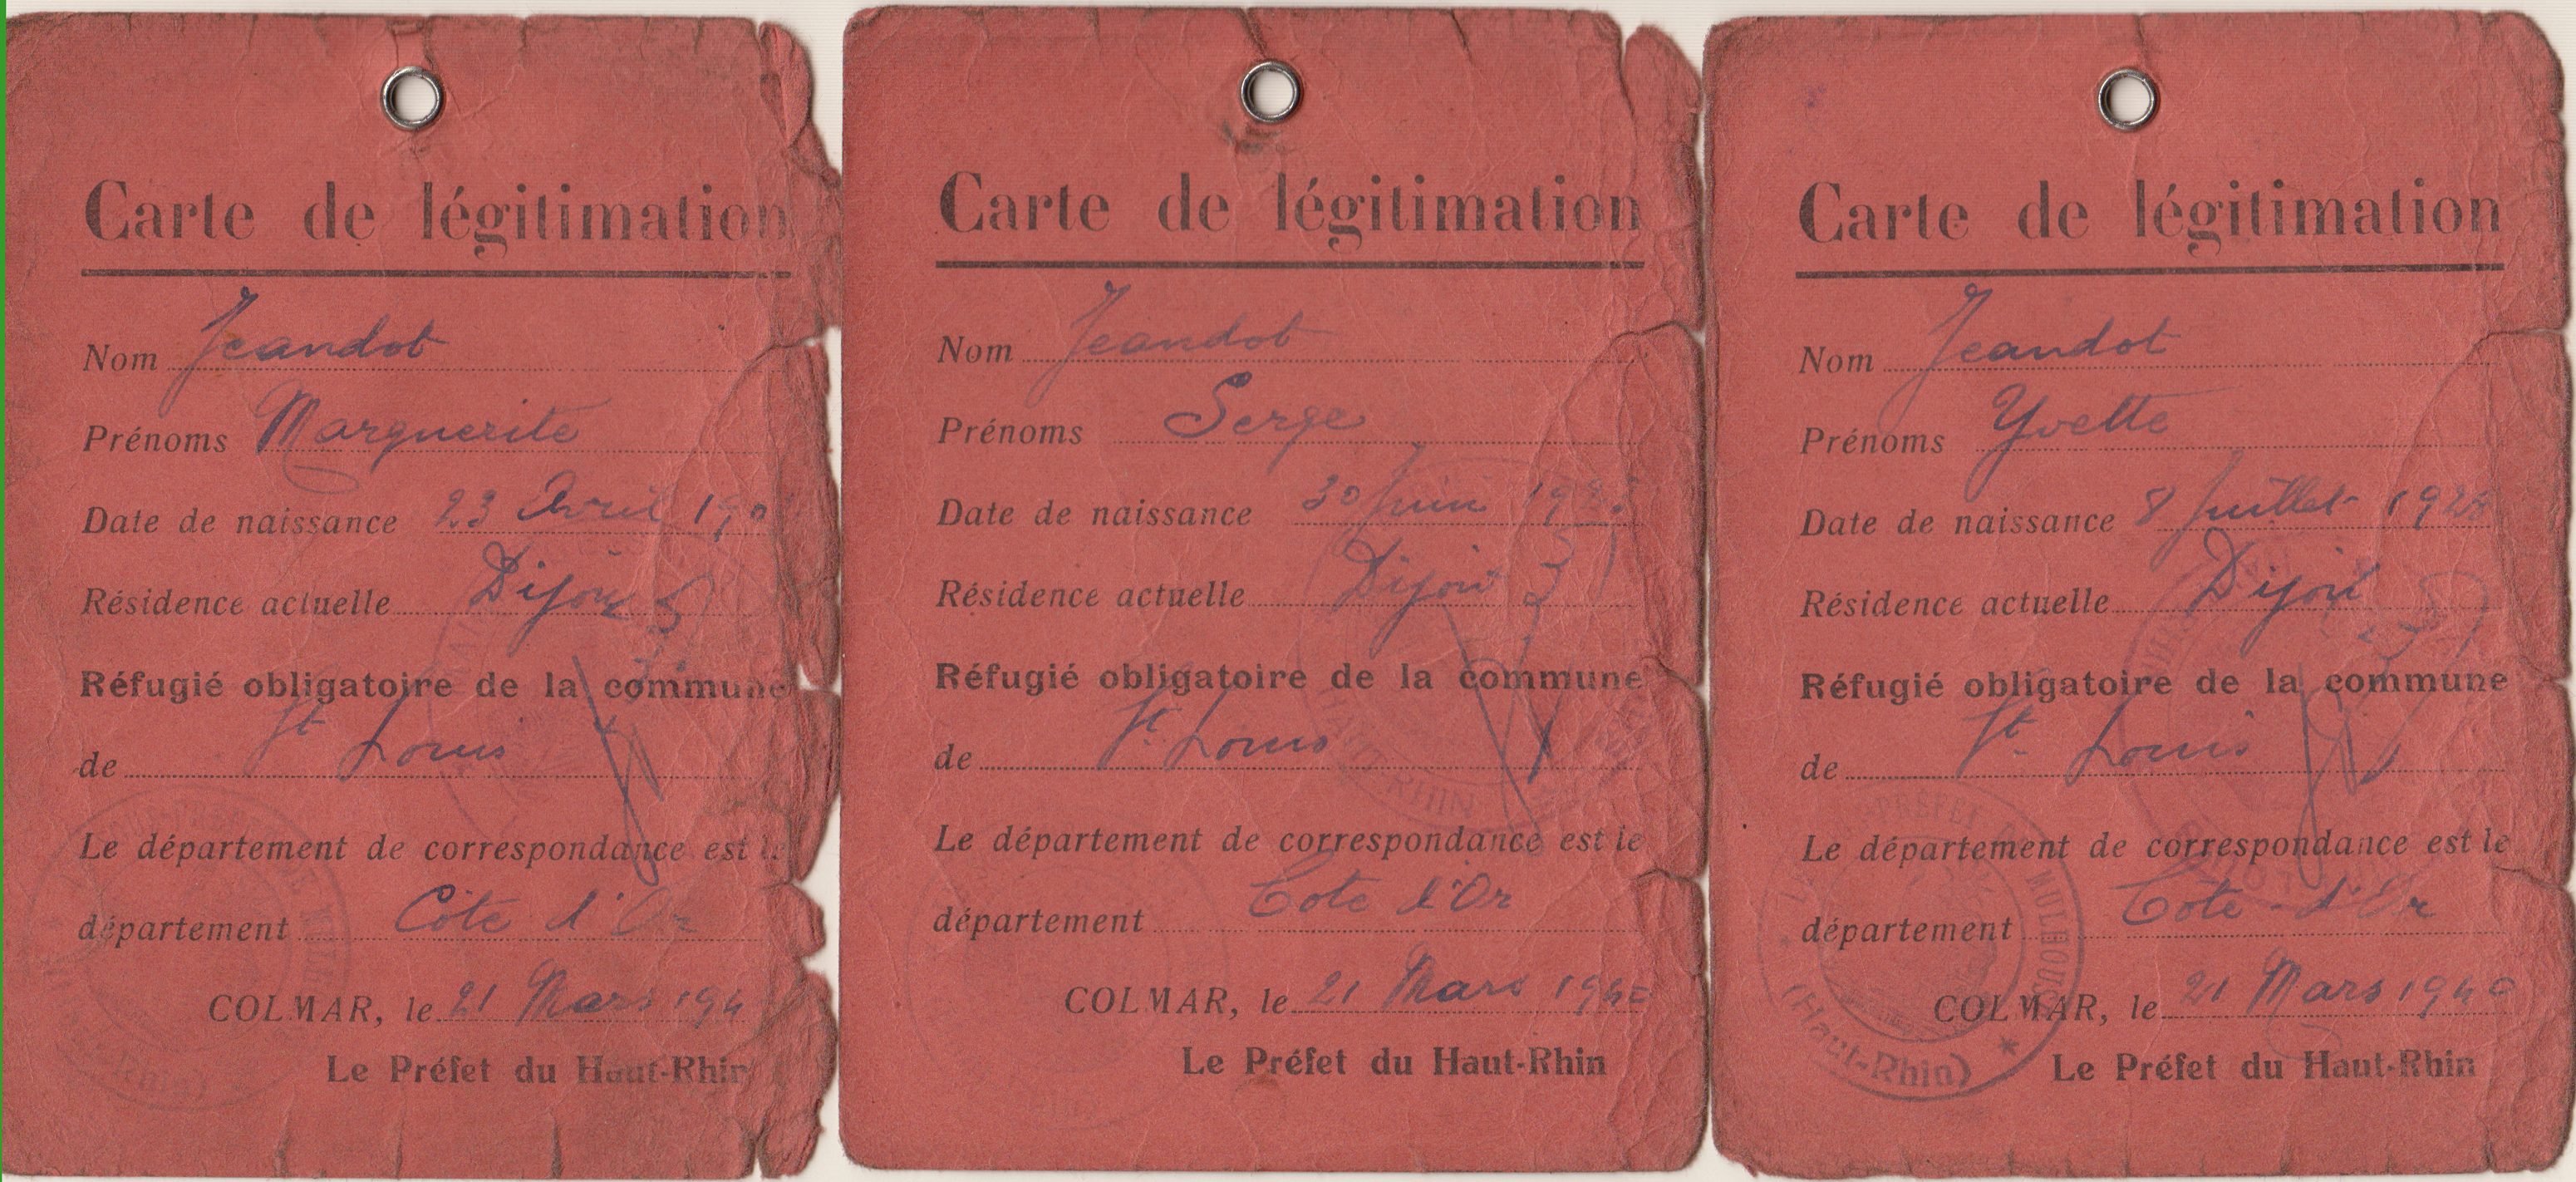 Carte de légitimation
Nom Jeandot
Prénoms Marguerite
Date de naissance 23 Avril
Résidence actuelle Dijon
Réfugié obligatoire de la commune
de St Louis
Le département de correspondance est le
département Côte d'Or
COLMAR, le 21 Mars 194
Le Préfet du Haut-Rhin
Carte de légitimation
Nom Jeandot
Prénoms Serge
Date de naissance 30 Juin
Résidence actuelle Dijon
Réfugié obligatoire de la commune
de St. Louis
Le département de correspondance est le
département Cote d'Or
COLMAR, le 21 Mars 1940
Le Préfet du Haut-Rhin
HAUT-RHIN
Carte de légitimation
Nom Jeandot
Prénoms Yvette
Date de naissance 8 Juillet 1928
Résidence actuelle Dijon
Réfugié obligatoire de la commune
de St. Louis
Le département de correspondance est le
département Côte-d'Or
COLMAR, le 21 Mars 1940
Le Préfet du Haut-Rhin
PREFET DE MULHOUSE
(Haut-Rhin)